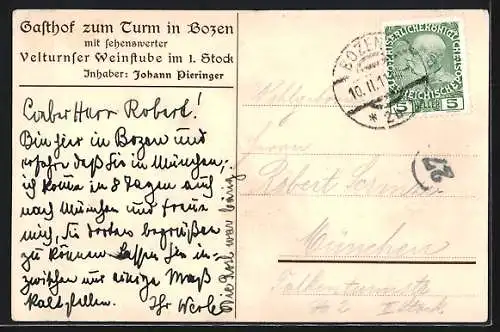 Gasthof zum Turm in Bozen
mit sehenswerter
Velturnser Weinstube im 1. Stock
Inhaber: Johann Pieringer
Lieber Herr Robert!
Bin hier in Bozen und
erfahre daß Sie in München,
ich komme in 8 Tagen auch
nach München und freue
mich, Sie dortens begrüßen
zu können. Lassen Sie in-
zwischen nur einige Maß
kaltstellen. Ihr
BOZEN
10. II. 1
* 2b
5 HELLER 5
27
Herrn
Robert
München
No 2 II Stock